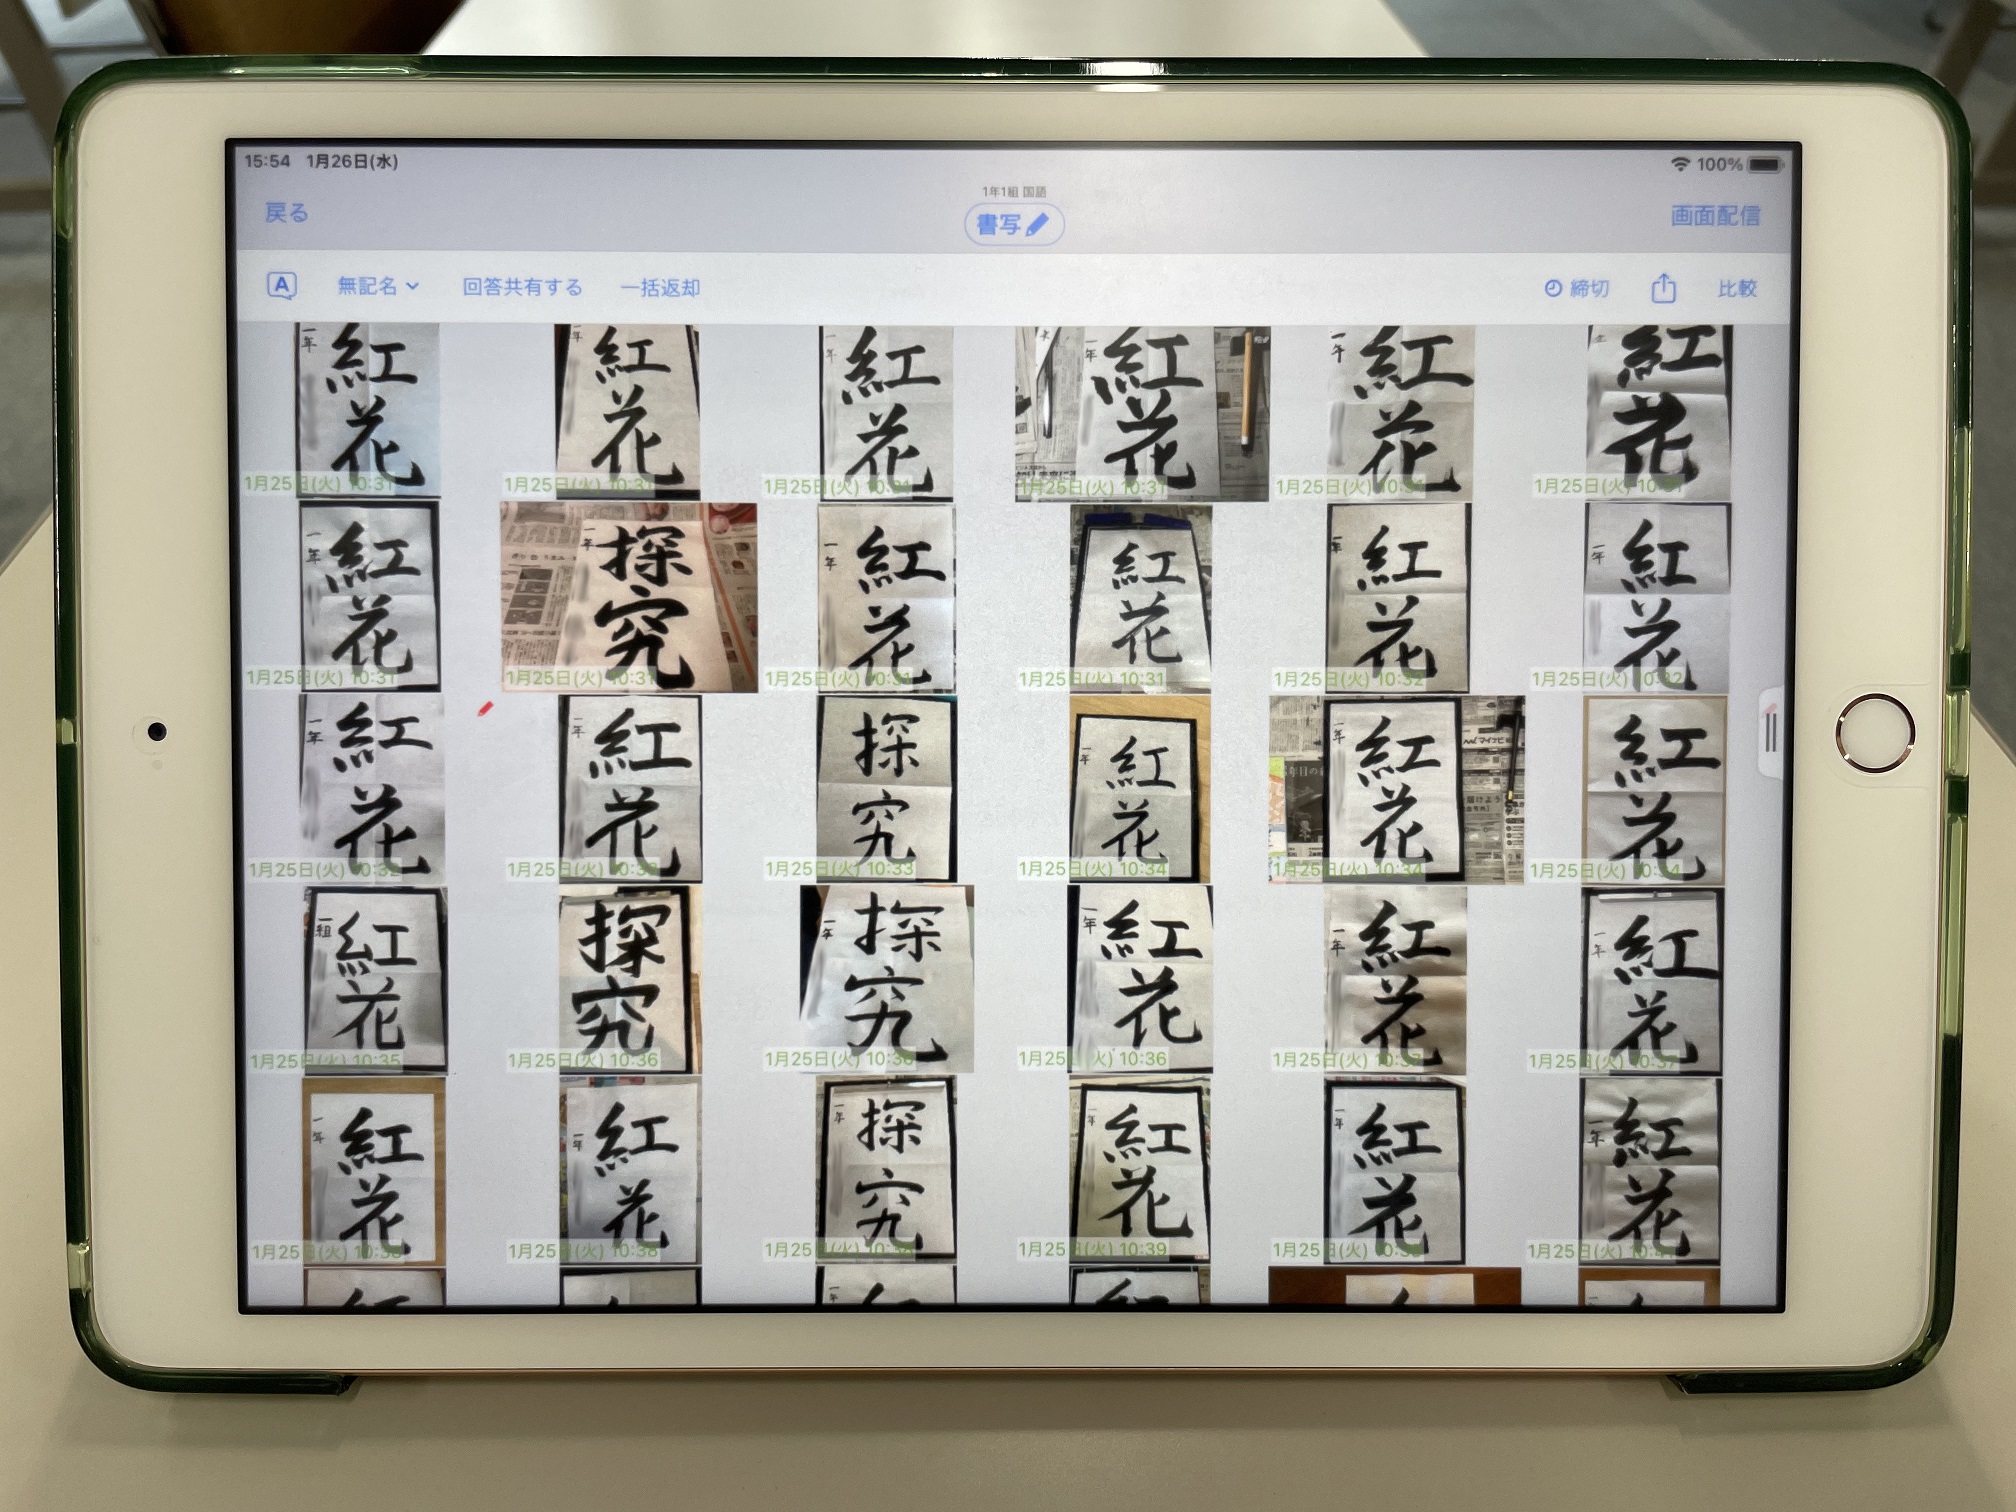 15:54 1月26日(水)
100%
1年1組 国語
戻る
書写
画面配信
A
無記名
回答共有する
一括返却
締切
比較
一年 紅花
1月25日(火) 10:31
紅花
1月25日(火) 10:31
一年 紅花
1月25日(火) 10:31
一年 紅花
1月25日(火) 10:31
一年 紅花
1月25日(火)
紅花
1月25日(火)
一年 紅花
1月25日(火) 10:31
一年 探究
1月25日(火) 10:31
一年 紅花
1月25日(火) 10:31
紅花
1月25日(火) 10:31
一年 紅花
1月25日(火) 10:32
一年 紅花
1月25日(火) 10:32
一年 紅花
1月25日(火) 10:32
一年 紅花
1月25日(火)
探究
1月25日(火) 10:33
一年 紅花
1月25日(火) 10:34
一年 紅花
1月25日(火) 10:34
紅花
1月25日(火)
組 紅花
1月25日(火) 10:35
探究
1月25日(火) 10:36
一年 探究
1月25日(火) 10:36
一年 紅花
1月25日(火) 10:36
一年 紅花
1月25日(火)
一年 紅花
1月25日(火) 10:37
一年 紅花
1月25日(火)
一年 紅花
1月25日(火) 10:38
一年 探究
1月25日(火)
一年 紅花
1月25日(火) 10:39
一年 紅花
1月25日(火)
一年 紅花
1月25日(火)